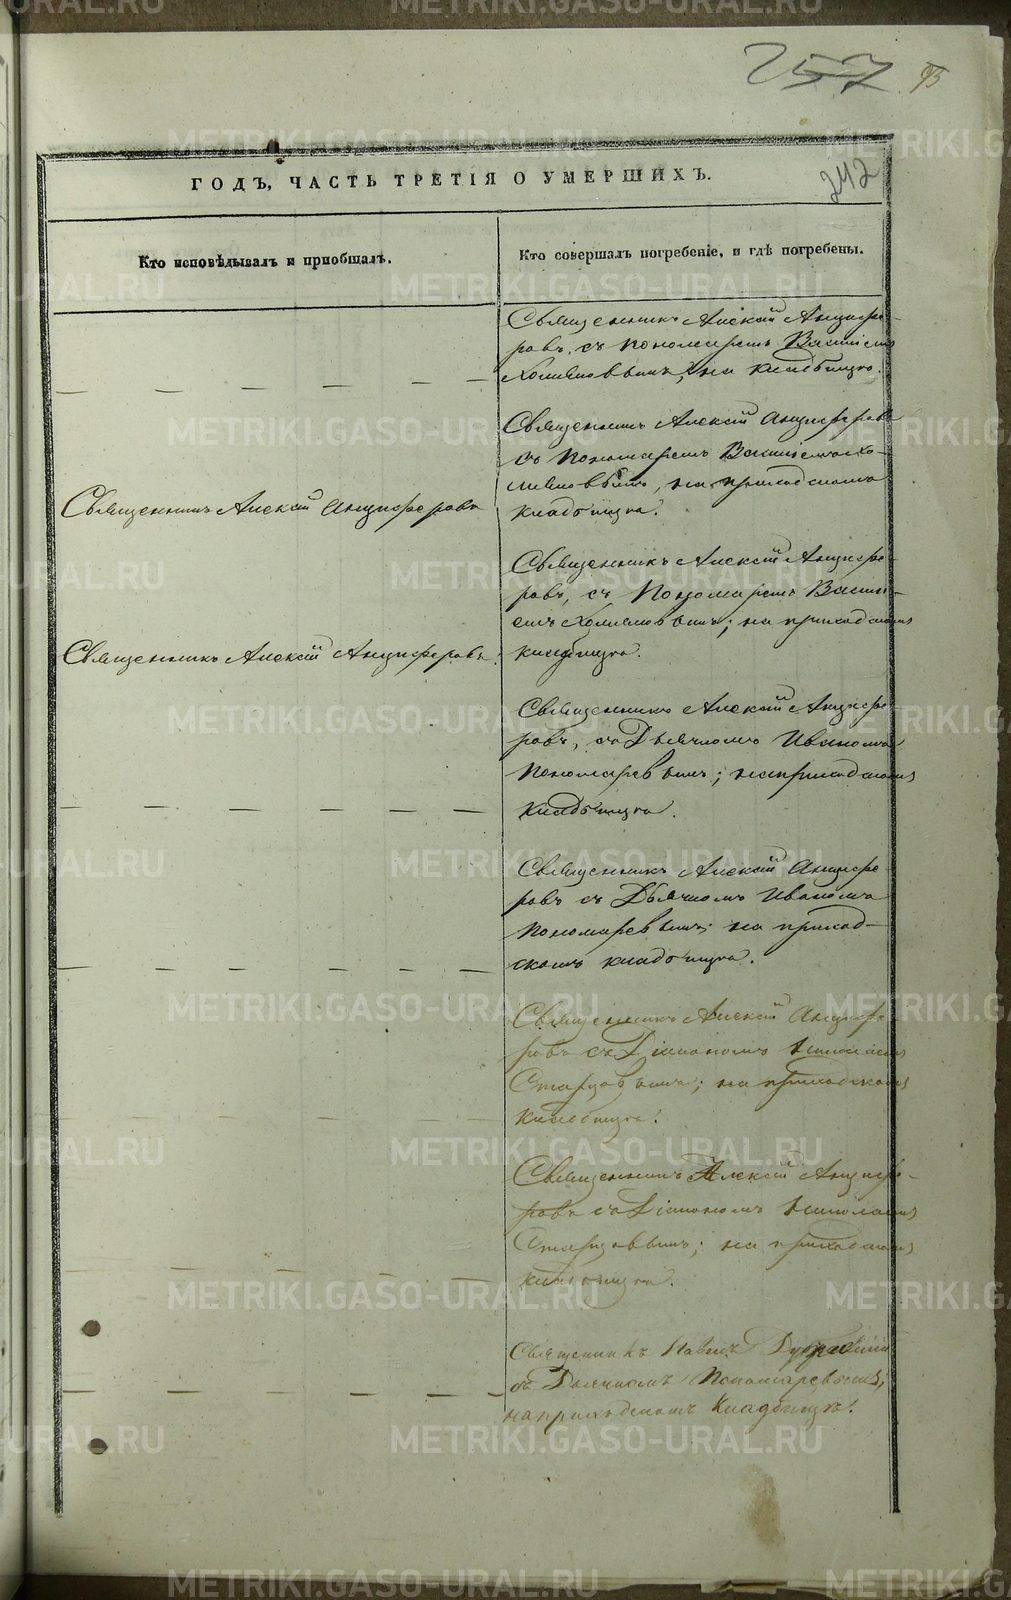 257
95
242
ГОДЪ, ЧАСТЬ ТРЕТІЯ О УМЕРШИХЪ.
Кто исповѣдывалъ и приобщалъ.
Кто совершалъ погребеніе, и гдѣ погребены.
Священникъ Алексій Анцифе-
ровъ, съ Пономаремъ Василіемъ
Хомяковымъ, на кладбищѣ.
Священникъ Алексій Анциферовъ
Священникъ Алексій Анциферовъ
съ Пономаремъ Василіемъ Хо-
мяковымъ, на приходскомъ
кладбищѣ.
Священникъ Алексій Анциферовъ.
Священникъ Алексій Анцифе-
ровъ, съ Пономаремъ Васили-
емъ Хомяковымъ; на приходскомъ
кладбищѣ.
Священникъ Алексій Анцифе-
ровъ, съ Дьячкомъ Иваномъ
Пономаревымъ; на приходскомъ
кладбищѣ.
Священникъ Алексій Анцифе-
ровъ съ Дьячкомъ Иваномъ
Пономаревымъ; на приход-
скомъ кладбищѣ.
Священникъ Алексій Анцифе-
ровъ съ Діакономъ
Старцовымъ; на приходскомъ
кладбищѣ.
Священникъ Алексій Анцифе-
ровъ съ Діакономъ
Старцовымъ; на приходскомъ
кладбищѣ.
Священникъ Павелъ
съ Дьячкомъ Пономаревымъ,
на приходскомъ Кладбищѣ.
METRIKI.GASO-URAL.RU